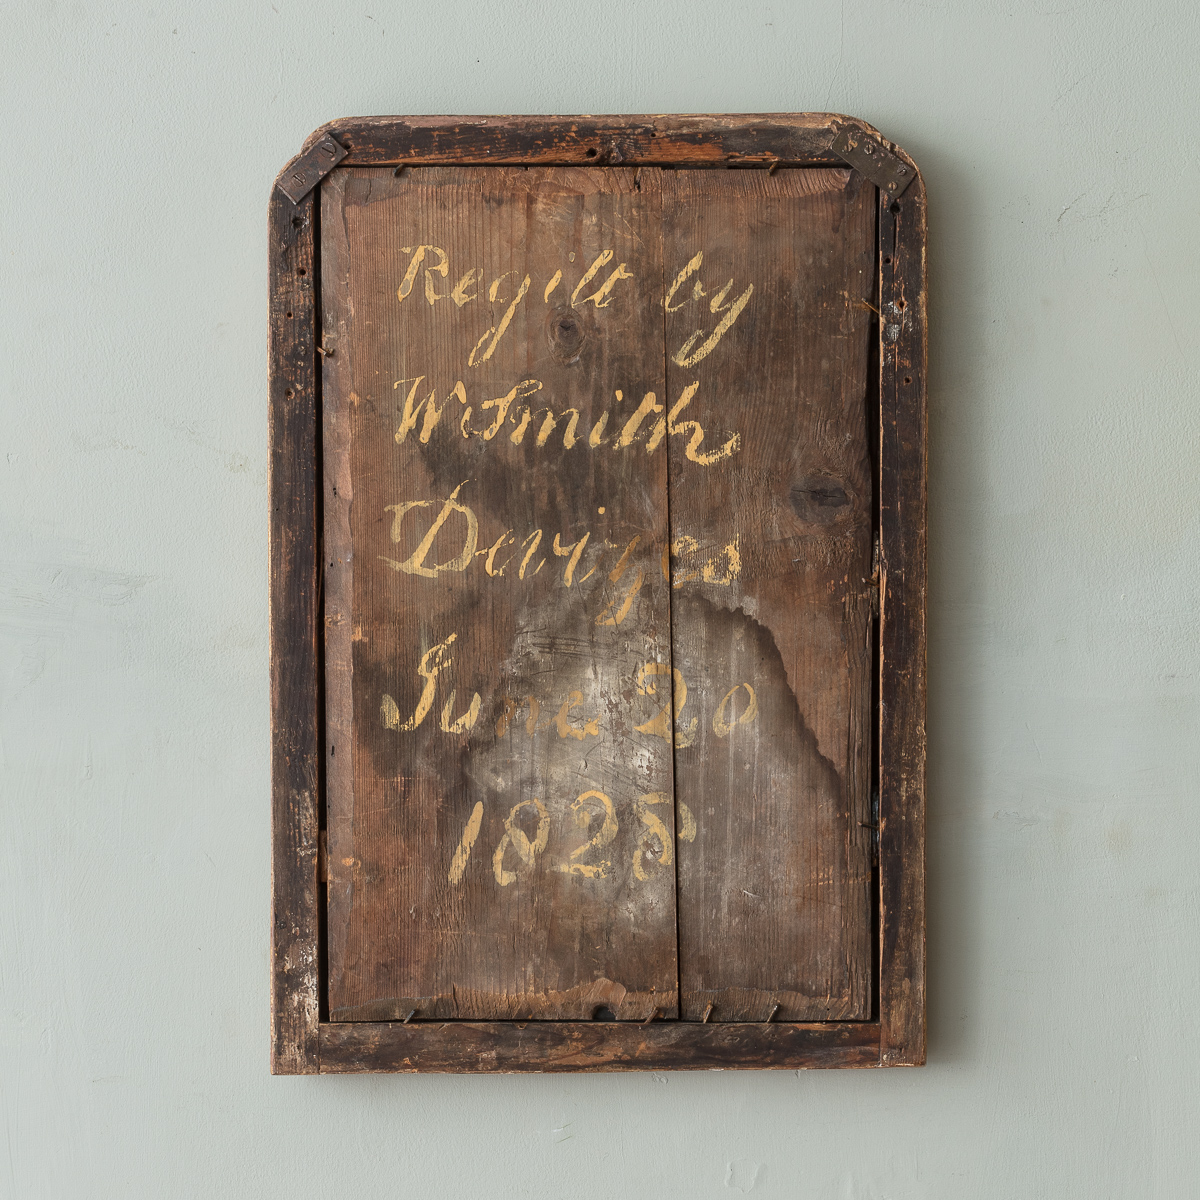 Regilt by
W Smith
Devizes
June 20
1828